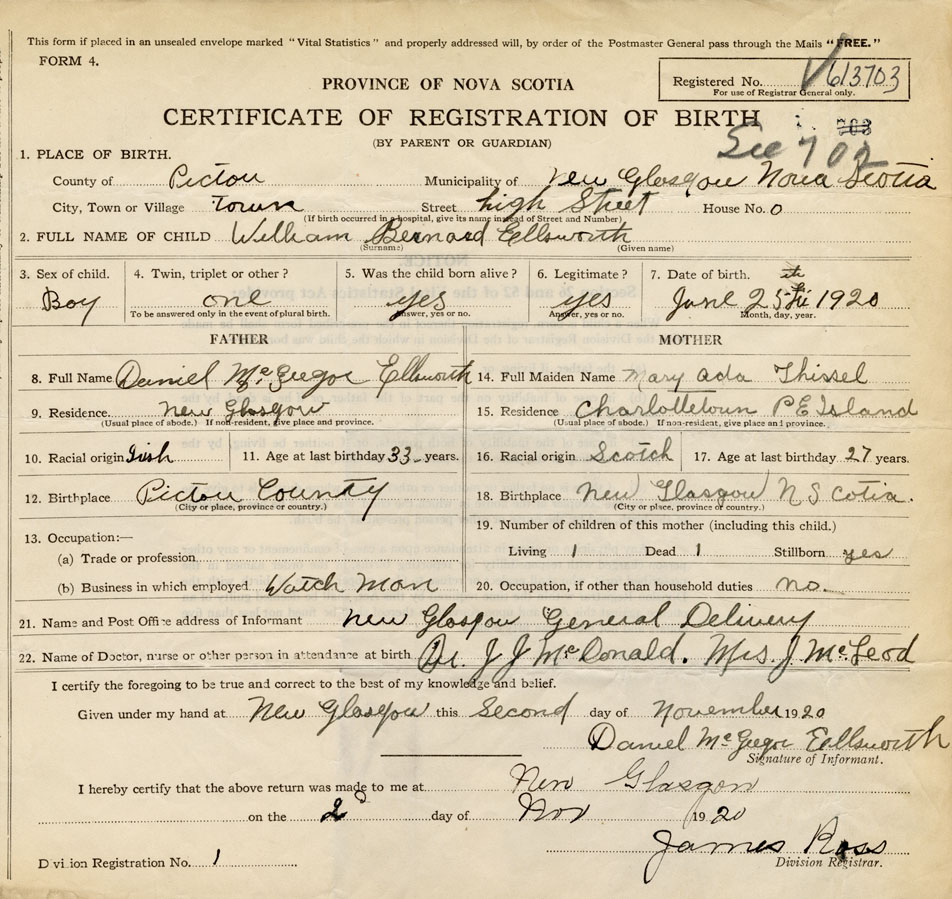 This form if placed in an unsealed envelope marked "Vital Statistics" and properly addressed will, by order of the Postmaster General pass through the Mails "FREE."
FORM 4.
Registered No. 613703
For use of Registrar General only.
PROVINCE OF NOVA SCOTIA
CERTIFICATE OF REGISTRATION OF BIRTH
(BY PARENT OR GUARDIAN)
See 702
1. PLACE OF BIRTH.
County of Pictou Municipality of New Glasgow Nova Scotia
City, Town or Village town Street high Street House No. 0
(If birth occurred in a hospital, give its name instead of Street and Number)
2. FULL NAME OF CHILD William Bernard Ellsworth
(Surname) (Given name)
3. Sex of child. 4. Twin, triplet or other? 5. Was the child born alive? 6. Legitimate? 7. Date of birth.
Boy one yes yes June 25th 1920
To be answered only in the event of plural birth. Answer, yes or no. Answer, yes or no. Month, day, year.
FATHER MOTHER
8. Full Name Daniel McGregor Ellsworth 14. Full Maiden Name Mary ada Thissel
9. Residence New Glasgow 15. Residence Charlottetown P E Island
(Usual place of abode.) If non-resident, give place and province. (Usual place of abode.) If non-resident, give place and province.
10. Racial origin Irish 11. Age at last birthday 33 years. 16. Racial origin Scotch 17. Age at last birthday 27 years.
12. Birthplace Pictou County 18. Birthplace New Glasgow N Scotia.
(City or place, province or country.) (City or place, province or country.)
13. Occupation:— 19. Number of children of this mother (including this child.)
(a) Trade or profession Living 1 Dead 1 Stillborn yes
(b) Business in which employed Watch Man 20. Occupation, if other than household duties no.
21. Name and Post Office address of Informant New Glasgow General Delivery
22. Name of Doctor, nurse or other person in attendance at birth Dr. J J McDonald. Mrs. J McLeod
I certify the foregoing to be true and correct to the best of my knowledge and belief.
Given under my hand at New Glasgow this Second day of November 1920
Daniel McGregor Eellsworth
Signature of Informant.
I hereby certify that the above return was made to me at New Glasgow
on the 2 day of Nov 1920
James Ross
Division Registration No. 1 Division Registrar.